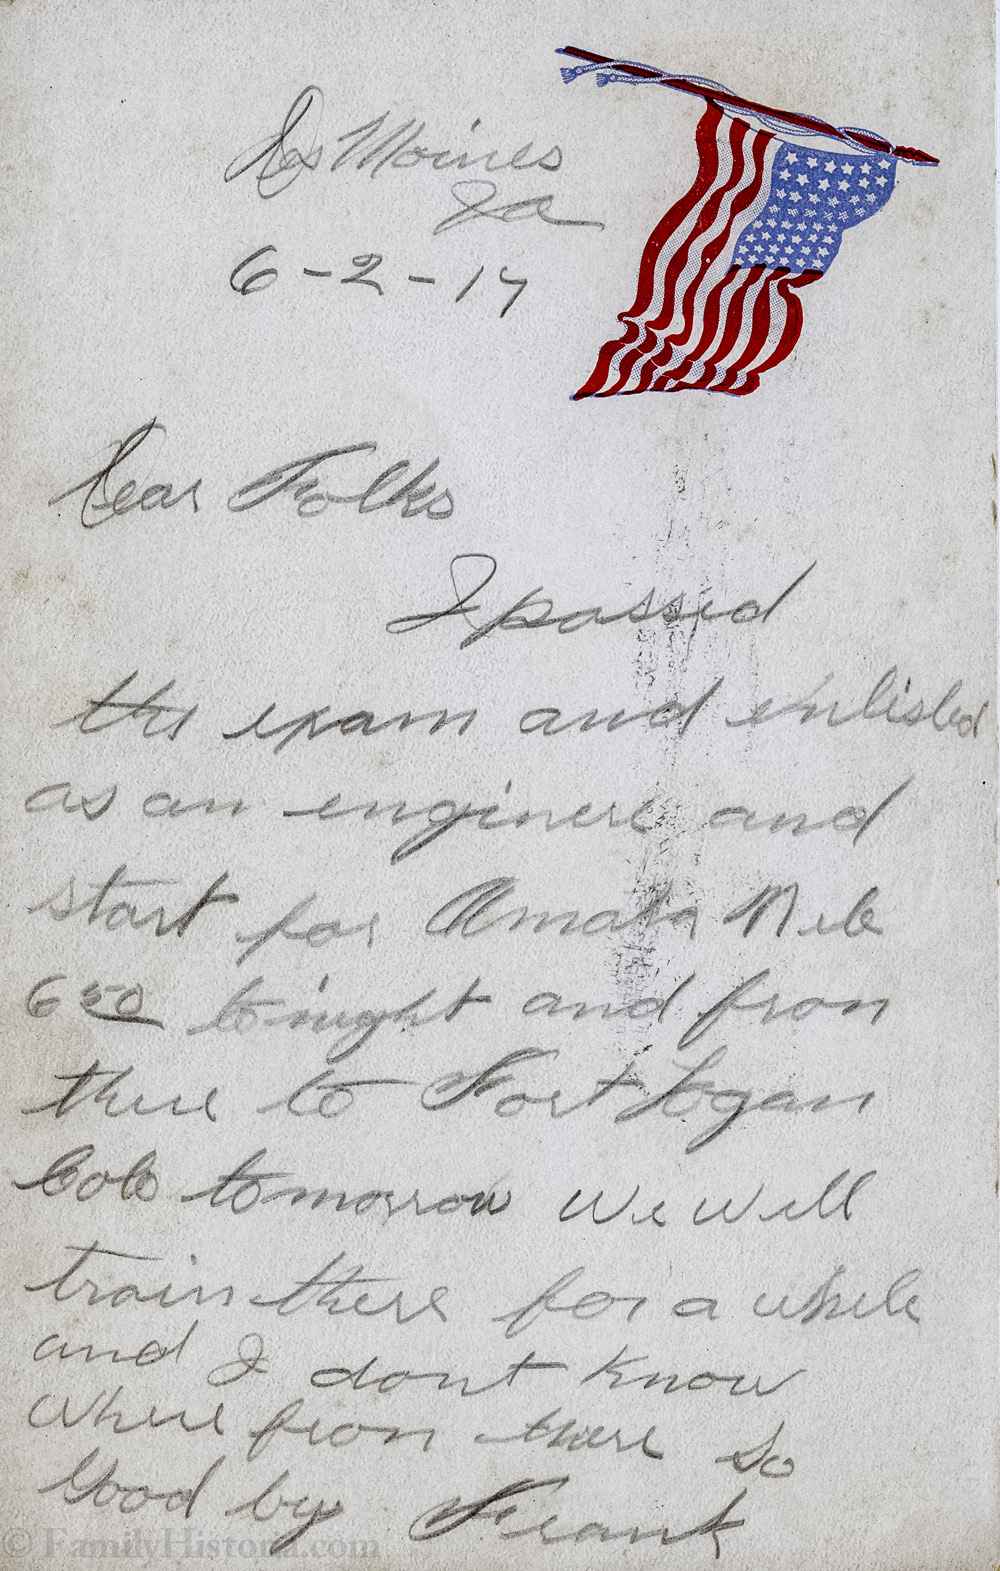 Des Moines
Ia
6-2-17
Dear Folks
I passed
the exam and enlisted
as an enginere and
start for Omaha Neb
6 50 tonight and from
there to Fort Logan
Colo tomorrow we will
train there for a while
and I dont know
where from there So
Good by Frank
© FamilyHistoria.com